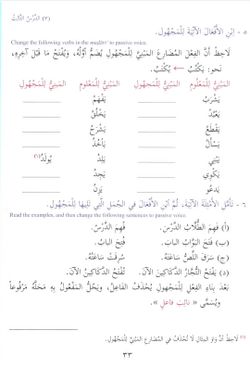 (٣) الدَّرْسُ الثَّالِثُ
٥ - اِبْنِ الْأَفْعَالَ الْآتِيَةَ لِلْمَجْهُولِ.
Change the following verbs in the muḍāriʿ to passive voice.
لَاحِظْ أَنَّ الْفِعْلَ الْمُضَارِعَ الْمَبْنِيَّ لِلْمَجْهُولِ يُضَمُّ أَوَّلُهُ، وَيُفْتَحُ مَا قَبْلَ آخِرِهِ،
نحو: يَكْتُبُ ← يُكْتَبُ.
الْمَبْنِيُّ لِلْمَعْلُومِ الْمَبْنِيُّ لِلْمَجْهُولِ الْمَبْنِيُّ لِلْمَعْلُومِ الْمَبْنِيُّ لِلْمَجْهُولِ
يَشْرَبُ يَفْهَمُ
يَعْبُدُ يَأْخُذُ
يَقْطَعُ يَشْرَحُ
يَسْأَلُ يَأْكُلُ
يَبْنِي يَلِدُ يُولَدُ(١)
يَكْوِي يَجِدُ
يَدْعُو يَزِنُ
٦ - تَأَمَّلِ الْأَمْثِلَةَ الْآتِيَةَ، ثُمَّ ابْنِ الْأَفْعَالَ فِي الْجُمَلِ الَّتِي تَلِيهَا لِلْمَجْهُولِ.
Read the examples, and then change the following sentences to passive voice.
(أ) فَهِمَ الطُّلَّابُ الدَّرْسَ. فُهِمَ الدَّرْسُ.
(ب) فَتَحَ الْبَوَّابُ الْبَابَ. فُتِحَ الْبَابُ.
(ج) سَرَقَ اللِّصُّ سَاعَتَهُ. سُرِقَتْ سَاعَتُهُ.
(د) يَفْتَحُ التُّجَّارُ الدَّكَاكِينَ الْآنَ. تُفْتَحُ الدَّكَاكِينُ الْآنَ.
بَعْدَ بِنَاءِ الْفِعْلِ لِلْمَجْهُولِ يُحْذَفُ الْفَاعِلُ، وَيَحُلُّ الْمَفْعُولُ بِهِ مَحَلَّهُ مَرْفُوعًا
وَيُسَمَّى « نَائِبَ فَاعِلٍ ».
(١) لَاحِظْ أَنَّ وَاوَ الْمِثَالِ لَا تُحْذَفُ فِي الْمُضَارِعِ الْمَبْنِيِّ لِلْمَجْهُولِ.
٣٣